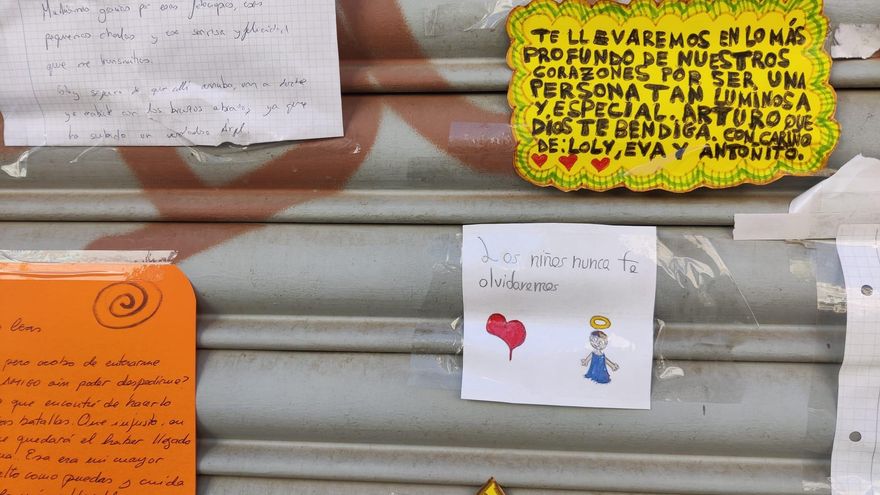 Muchísimo gracias por esos
pequeños charlas y ese sonrisa y felicidad
que me transmitías.
Estoy seguro de que allí arriba, van a
los brazos abiertos, ya que
ha subido un verdadero Angel
TE LLEVAREMOS EN LO MÁS
PROFUNDO DE NUESTROS
CORAZONES POR SER UNA
PERSONA TAN LUMINOSA
Y ESPECIAL. ARTURO QUE
DIOS TE BENDIGA. CON CARIÑO
DE: LOLY, EVA Y ANTOÑITO.
Los niños nunca te
olvidaremos
leas
pero acabo de enterarme
AMIGO sin poder despedirme?
que encontré de hacerlo
batallas. Que injusto, su
quedará el haber llegado
Esa era mi mayor
como puedas y cuida